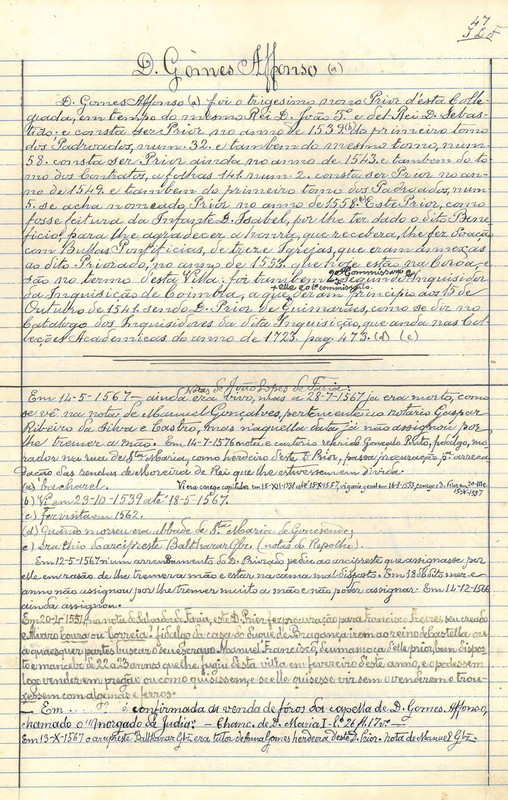 47
D. Gomes Affonso (a)
D. Gomes Affonso (a) foi o trigesimo nono Prior d'esta Colle-
giada, em tempo do mesmo Rei D. João 3º e del Rei D. Sebas-
tião; e consta ser Prior no anno de 1539(b) do primeiro tomo
dos Padroados, num. 32. e tambem do mesmo tomo, num.
58. consta ser Prior ainda no anno de 1543. e tambem do to-
mo dos Contratos, a folhas 141. num. 2. consta ser Prior no an-
no de 1549. e tambem do primeiro tomo dos Padroados, num.
5. se acha nomeado Prior no anno de 1558. Este Prior, como
fosse feitura da Infante D. Isabel, por lhe ter dado o dito Bene-
ficio, para lhe agradecer a honra, que recebera, lhe fez Doação
com Bullas Pontificias, de treze Igrejas, que eram annexas
ao dito Priorado, no anno de 1553. que hoje estão na Coroa, e
são no termo desta Villa: foi tambem segundo Inquisidor
da Inquisição de Coimbra, a que deram principio aos 15 de
Outubro de 1541. sendo D. Prior de Guimarães, como se diz no
Catalogo dos Inquisidores da dita Inquisição, que anda nas Col-
lecções Academicas do anno de 1723. pag. 473. (d) (e)
Notas de João Lopes de Faria:
Em 14-5-1567 - ainda era vivo, mas a 28-7-1567 já era morto, como
se vê na nota de Manuel Gonçalves, pertencente ao notario Gaspar
Ribeiro da Silva e Castro, mas naquella data já não assignou por
lhe tremer a mão. Em 14-7-1576 e cartorio referido Gonçalo Pinto, fidalgo, mo-
rador na rua de Stª Maria, como herdeiro deste D. Prior, passa procuração pª arreca-
dação das rendas de Moreira de Rei que lhe estivessem em divida.
(a) Bacharel.
b) Vi em 23-10-1539 até 18-5-1567.
c) Fez visita em 1562.
(d) Quando morreu era abbade de Stª Maria de
e) Era thio do arcipreste Balthazar Glz.
Em 12-5-1567 n'um arrendamento do D. Priorado pediu ao arcipreste que assignasse por
elle em rasão de lhe tremer a mão e estar na cama mal disposto. Em 18 do dito mez e
anno não assignou por lhe tremer muito a mão e não poder assignar. Em 14-12-1566
ainda assignou.
Em 20-4-1551, na nota de Salvador de Faria, este D. Prior fez procuração para Francisco Freires seu creado
e fidalgo da casa do duque de Bragança irem ao reino de Castella ou
a quaesquer partes buscar o deu escravo Manuel Francisco, de uma mão d'elle prior, bem dispos-
to e mancebo de 22 a 23 annos que lhe fugiu desta villa em fevereiro deste anno, e o podessem
logo vender em pregão ou como quisessem, e se elle quisesse vir sem o venderem o trou-
xessem com algemas e ferros.
- Em ... ? é confirmada a venda de fóros da capella de D. Gomes Affonso,
chamado o "Morgado de Judia". - Chanc. de D. Maria I - Lº 26 fl. 17vº -
Em 13-X-1567 o arcipreste Balthazar Glz era tutor de Anna Gomes herdeira deste D. Prior. Nota de Manuel Glz.